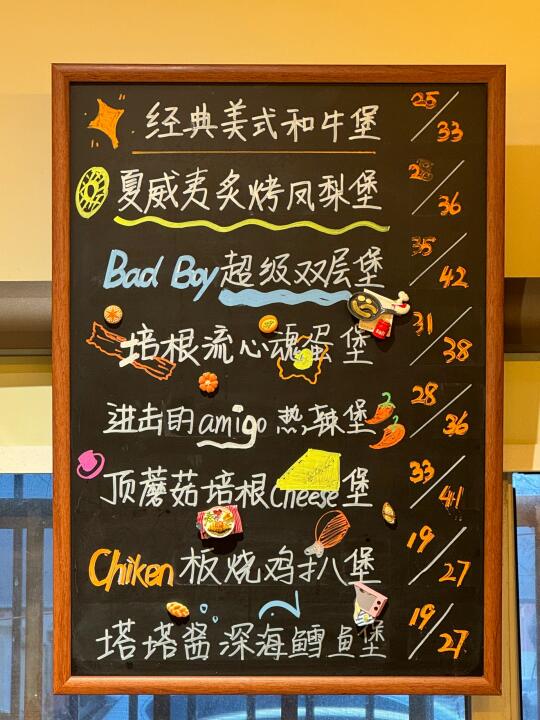 经典美式和牛堡 25/33
夏威夷炙烤凤梨堡 2 /36
Bad Boy超级双层堡 35/42
培根流心魂蛋堡 31/38
进击的amigo热辣堡 28/36
顶蘑菇培根Cheese堡 33/41
Chiken板烧鸡扒堡 19/27
塔塔酱深海鳕鱼堡 19/27